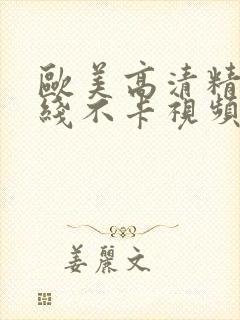 歐美高清精
綫不卡視頻
姜麗文